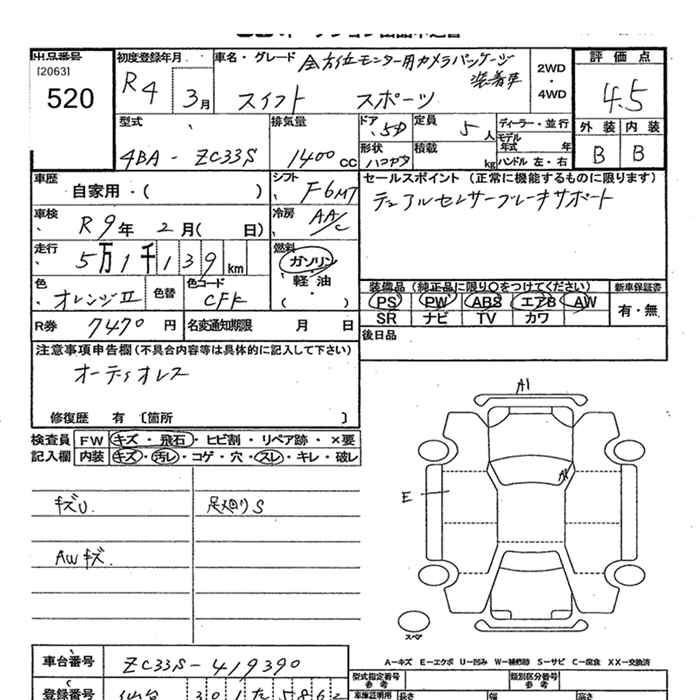 出品番号
[2063]
520
初度登録年月
R4 3月
車名・グレード
全方位モニター用カメラパッケージ
装着車
スイフト スポーツ
2WD
・
4WD
評価点
4.5
外装 内装
B B
型式
4BA - ZC33S
排気量
1400cc
ドア
5D
定員
5人
形状
積載
kg
ディーラー・並行
モデル
年式 年
ハンドル 左・右
車歴
自家用・( )
シフト
F6MT
車検
R9年 2月( 日)
冷房
AA/C
走行
5万1千139km
燃料
ガソリン
・
軽油
・
( )
色
オレンジII
色替
色コード
CFK
R券 7470円
名変通知期限 月 日
セールスポイント(正常に機能するものに限ります)
デュアルセンサーブレーキサポート
装備品(純正品に限り○をつけてください)
PS PW ABS エアB AW
SR ナビ TV カワ
新車保証書
有・無
後日品
注意事項申告欄(不具合内容等は具体的に記入して下さい)
オーディオレス
修復歴 有 〔箇所 〕
検査員
記入欄
FW キズ・飛石・ヒビ割・リペア跡・×要
内装 キズ・汚レ・コゲ・穴・スレ・キレ・破レ
キズU
足廻りS
AWキズ
A1
A1
E
スペア
A-キズ E-エクボ U-凹み W-補修跡 S-サビ C-腐食 XX-交換済
車台番号
ZC33S-419390
型式指定番号
参考
類別区分番号
参考
登録番号
仙台 301 た 5862
車庫証明用
参考
長さ
幅
高さ